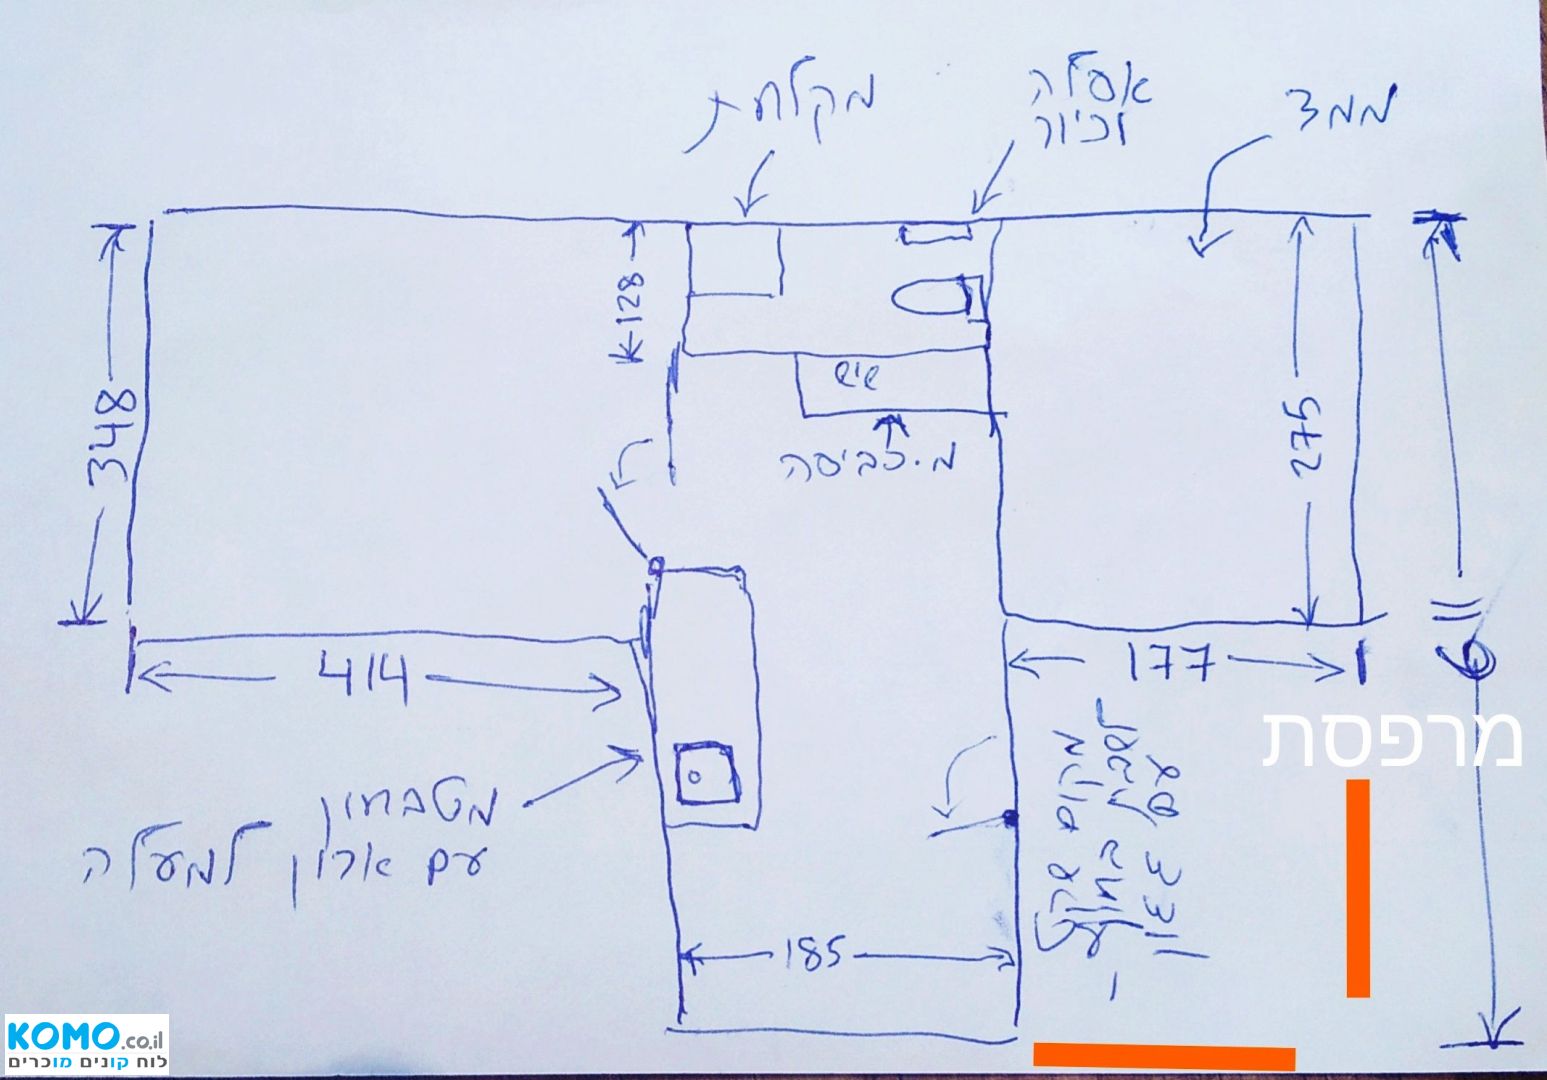 מקלחת
אסלה
וכיור
ממד
348
128
שיש
מ.כביסה
275
611
414
177
מרפסת
מטבחון
עם ארון למעלה
מקום שקל
לשבת בחוץ
עם גגון
185
KOMO.co.il
לוח קונים מוכרים